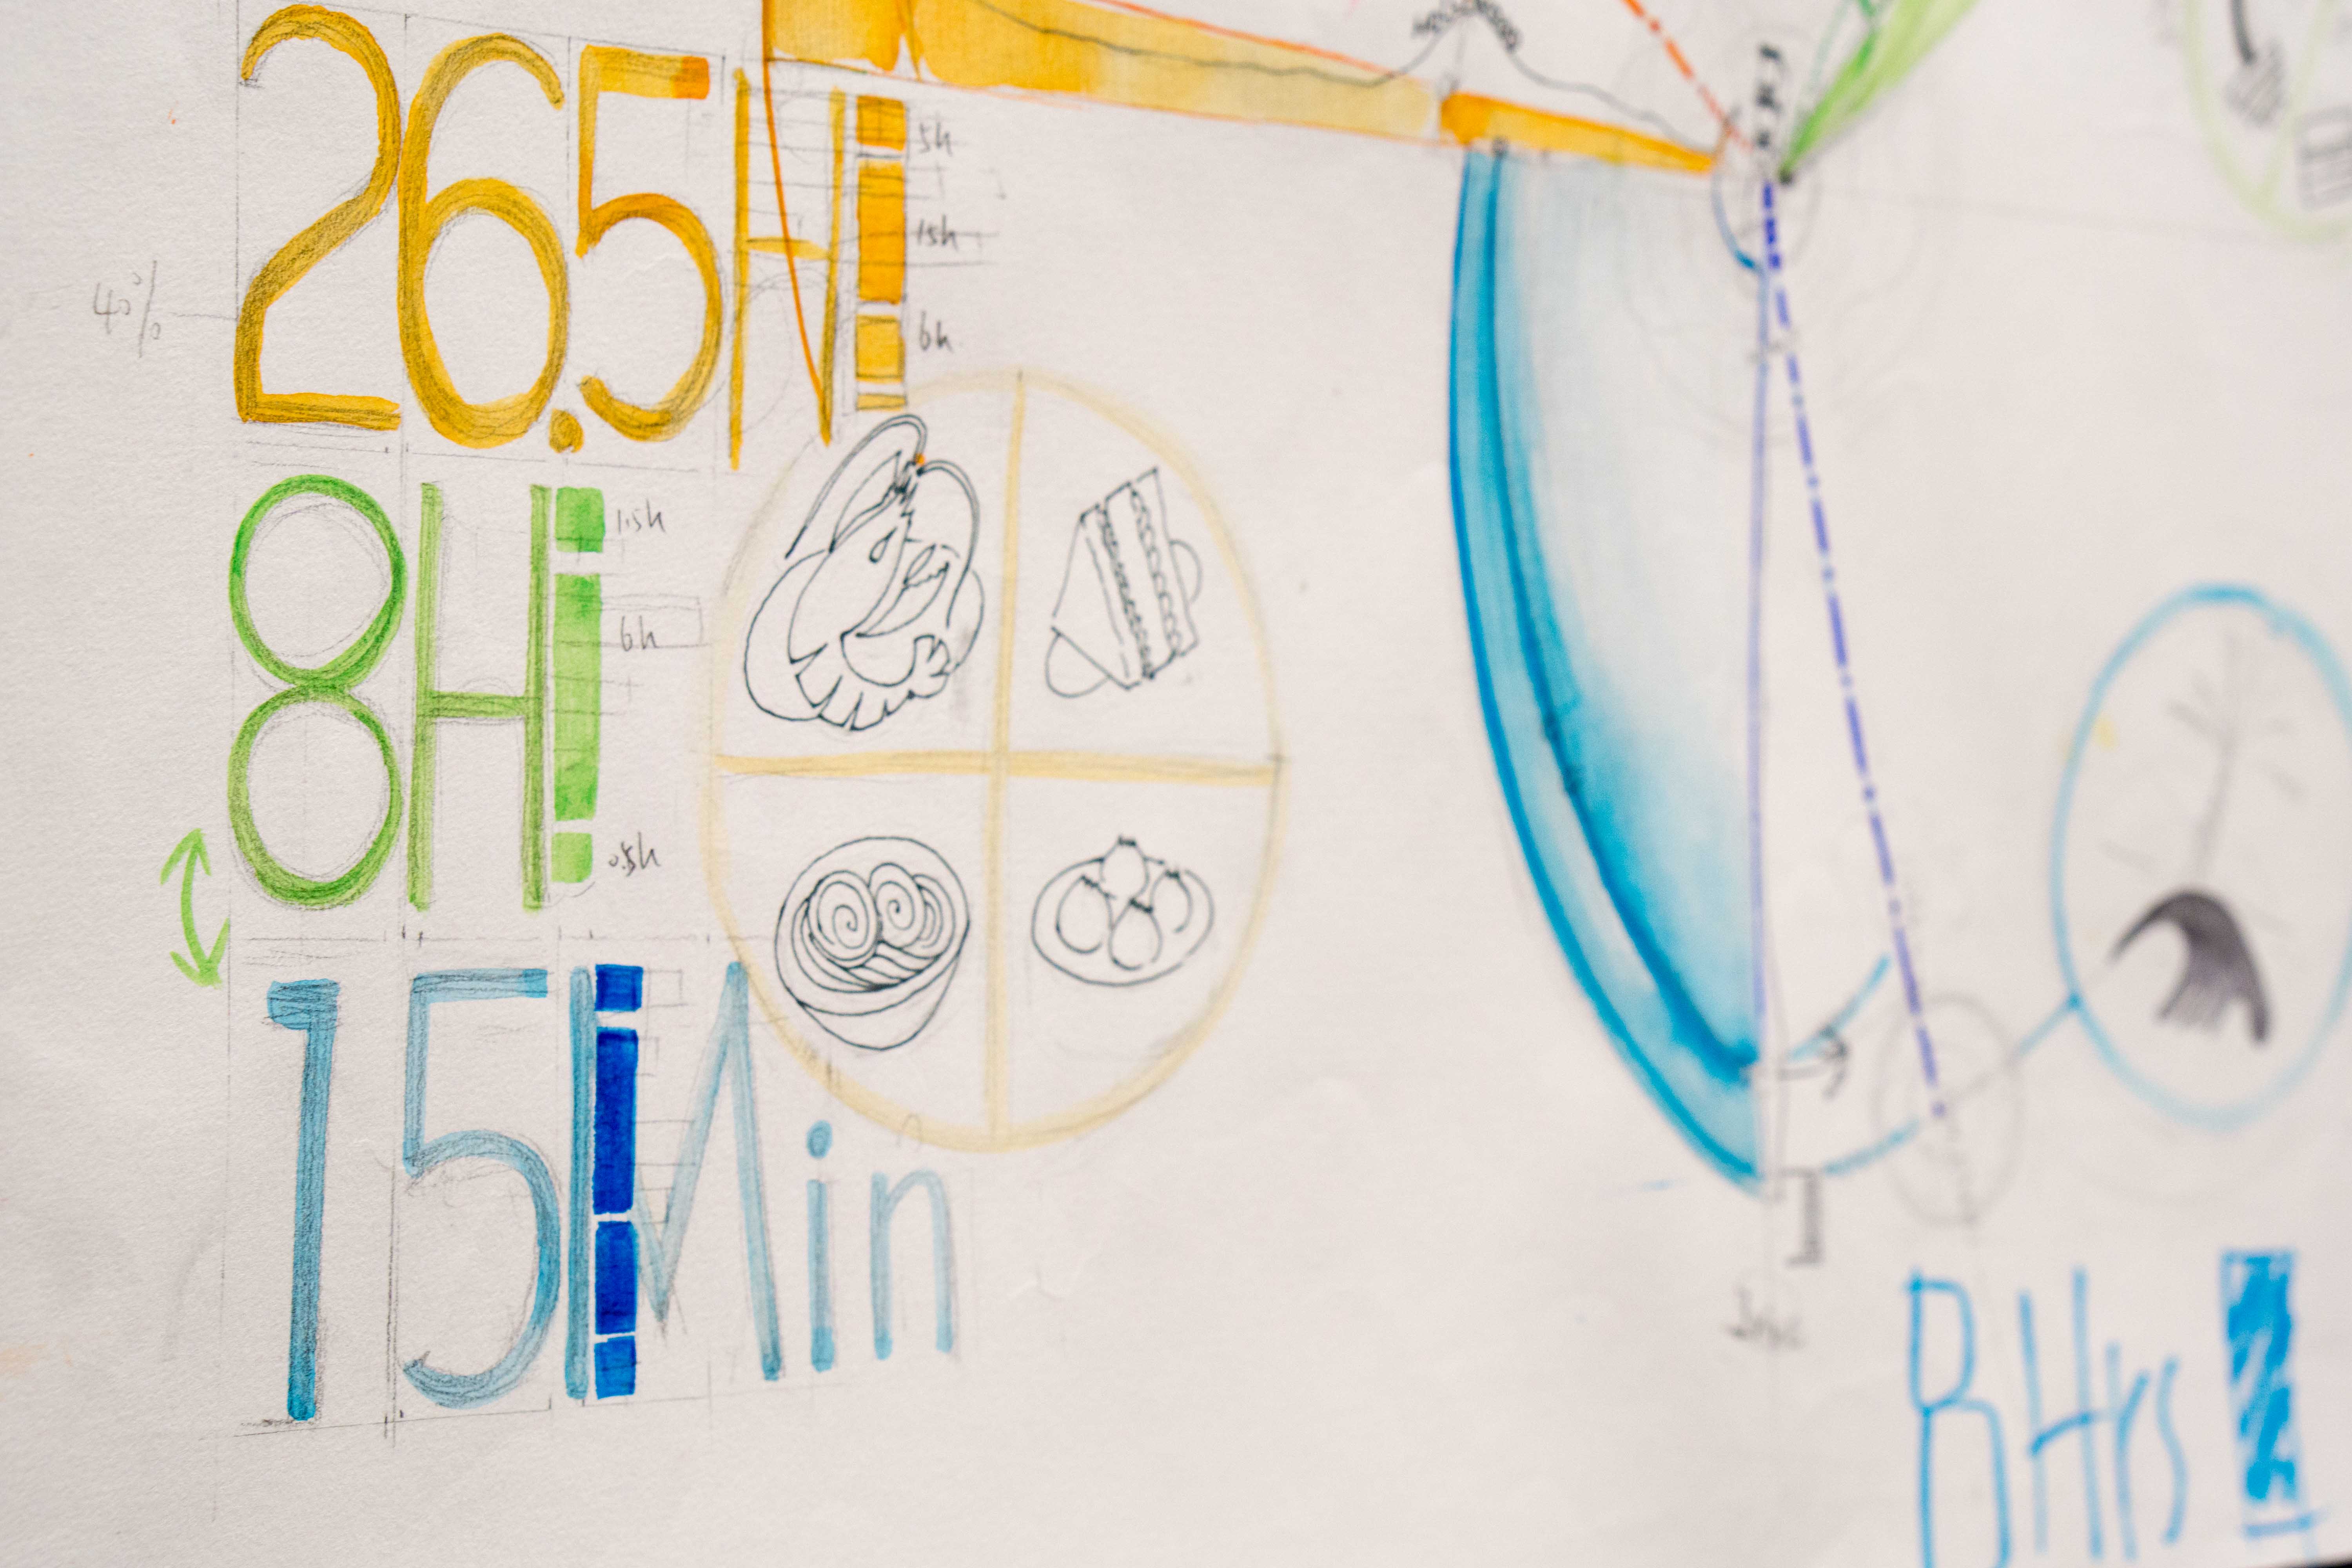 26.5H
5h
15h
6h
40%
8H
1.5h
6h
0.5h
15Min
8Hrs